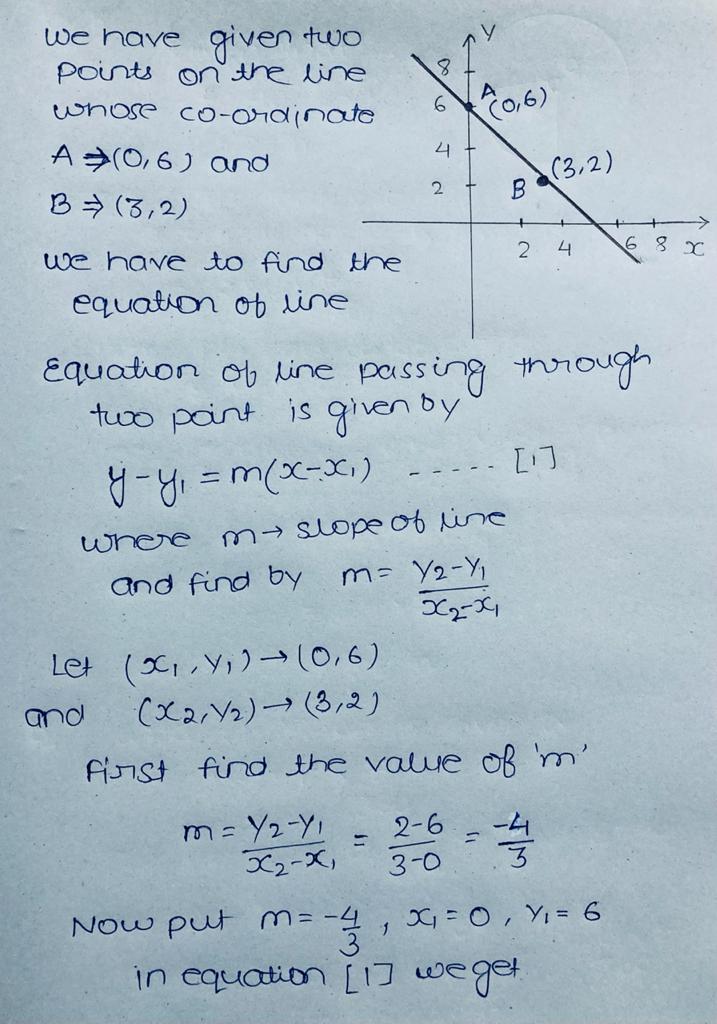 we have given two
points on the line
whose co-ordinate
A ⇒ (0,6) and
B ⇒ (3,2)
we have to find the
equation of line
Y
8
6
4
2
A (0,6)
B (3,2)
2 4 6 8 x
Equation of line passing through
two point is given by
y-y₁ = m(x-x₁) ----- [1]
where m → slope of line
and find by m = Y₂-Y₁/x₂-x₁
Let (x₁, Y₁) → (0,6)
and (x₂, Y₂) → (3,2)
First find the value of 'm'
m = Y₂-Y₁/x₂-x₁ = 2-6/3-0 = -4/3
Now put m = -4/3, x₁ = 0, Y₁ = 6
in equation [1] we get